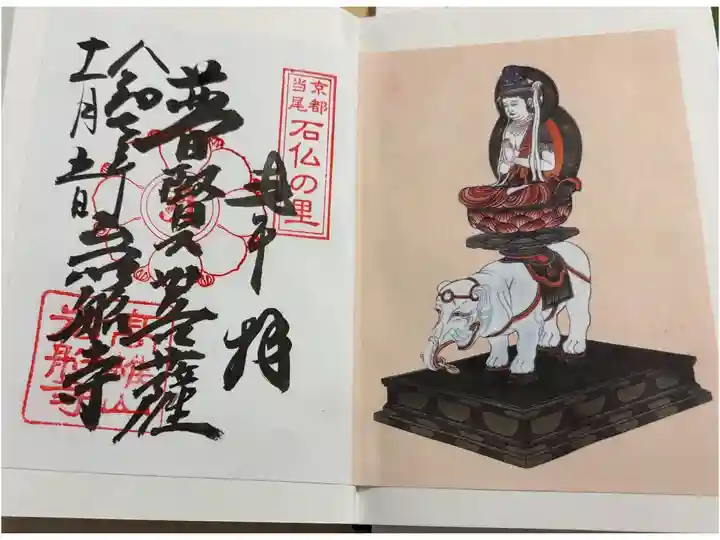 京都
当尾
石仏の里
奉拝
普賢菩薩
令和
十一月十一日
岩船寺
高雄山
岩船寺